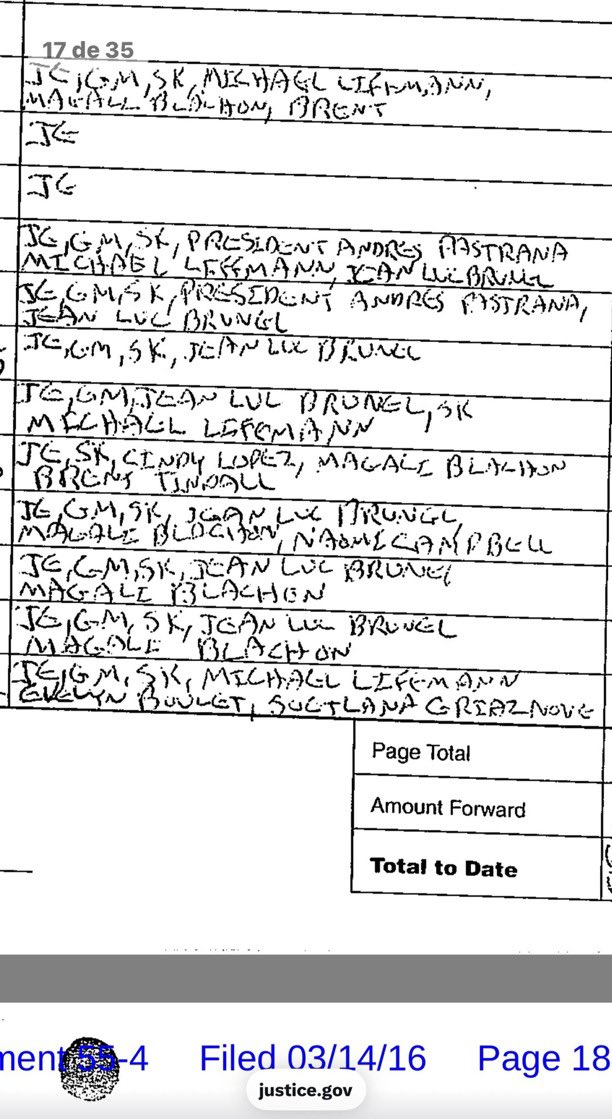 17 de 35
JE, GM, SK, MICHAEL LIFFMANN,
MAGALI BLACHON, BRENT
JE
JE
JE, GM, SK, PRESIDENT ANDRES PASTRANA
MICHAEL LIFFMANN, JEAN LUC BRUNEL
JE, GM, SK, PRESIDENT ANDRES PASTRANA,
JEAN LUC BRUNEL
JE, GM, SK, JEAN LUC BRUNEL
JE, GM, JEAN LUC BRUNEL, SK
MICHAEL LIFFMANN
JE, SK, CINDY LOPEZ, MAGALI BLACHON
BRENT TINDALL
JE, GM, SK, JEAN LUC BRUNEL,
MAGALI BLACHON, NAOMI CAMPBELL
JE, GM, SK, JEAN LUC BRUNEL
MAGALI BLACHON
JE, GM, SK, JEAN LUC BRUNEL
MAGALI BLACHON
JE, GM, SK, MICHAEL LIFFMANN
EVELYN BOULET, SVETLANA GRIAZNOVE
Page Total
Amount Forward
Total to Date
ment 55-4 Filed 03/14/16 Page 18
justice.gov